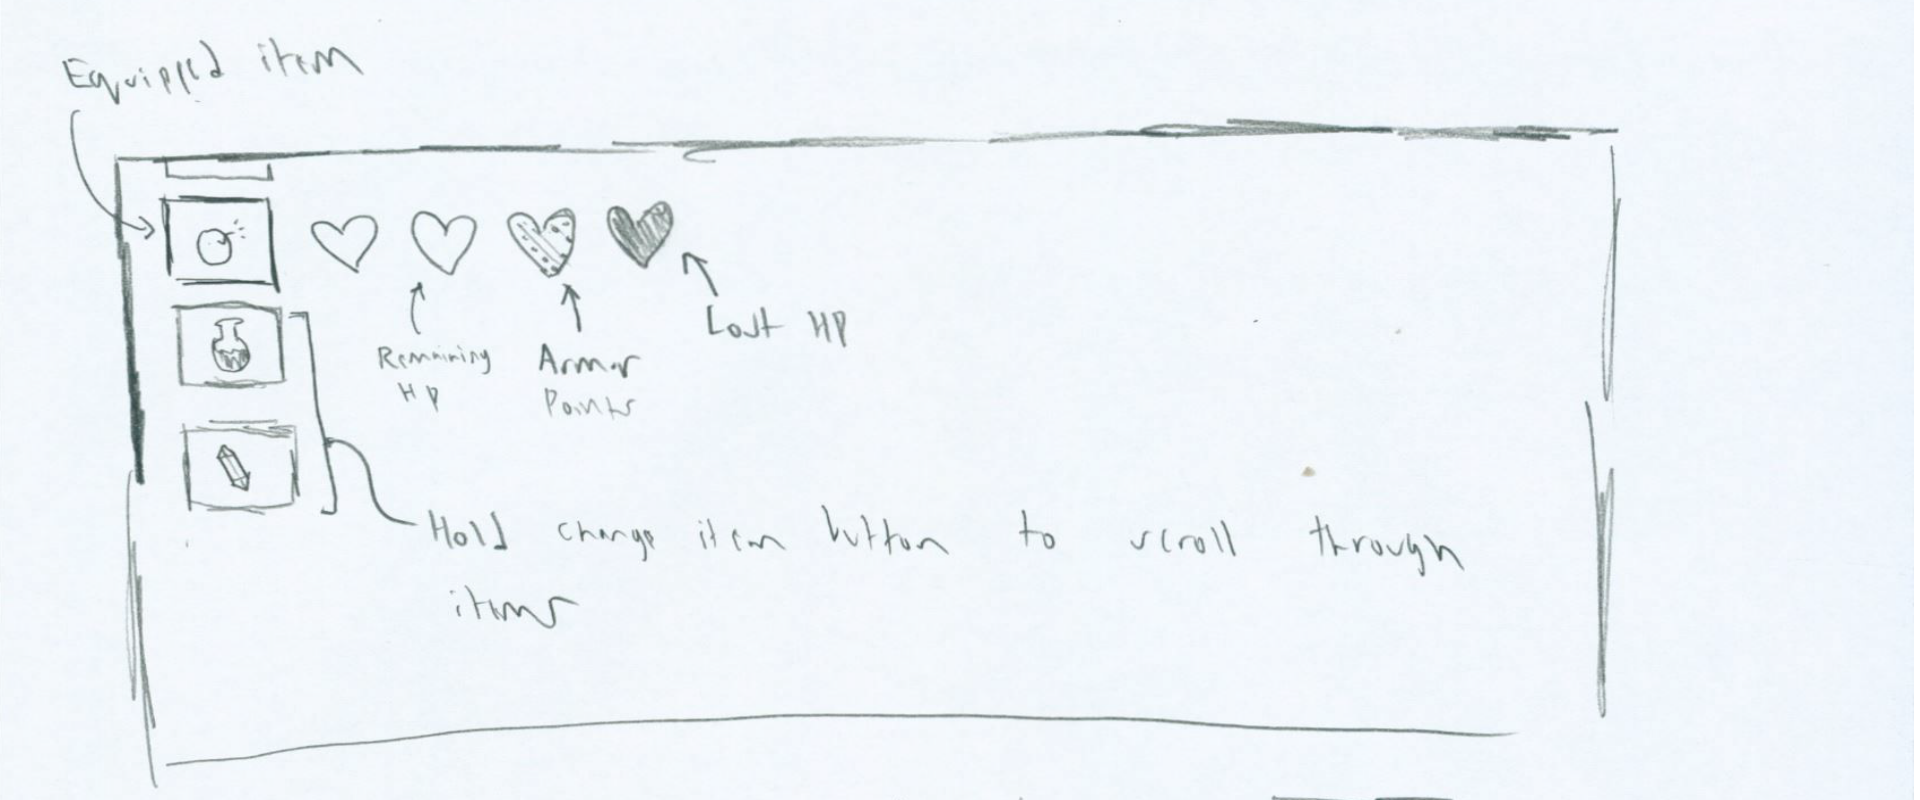 Equipped item
Remaining
HP
Armor
Points
Lost HP
Hold change item button to scroll through
items